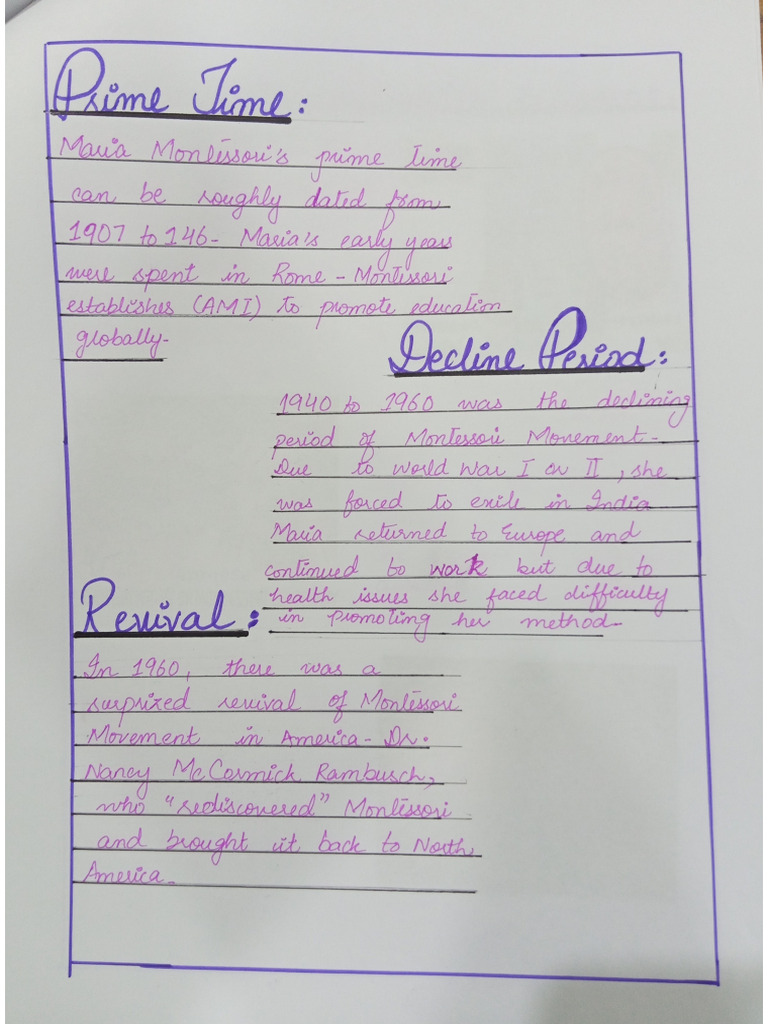 Prime Time:
Maria Montessori's prime time
can be roughly dated from
1907 to 146- Maria's early years
were spent in Rome - Montessori
establishes (AMI) to promote education
globally-
Decline Period:
1940 to 1960 was the declining
period of Montessori Movement-
Due to world war I or II, she
was forced to exile in India
Maria returned to Europe and
continued to work but due to
health issues she faced difficulty
in promoting her method-
Revival:
In 1960, there was a
surprized revival of Montessori
Movement in America- Dr.
Nancy McCormick Rambusch,
who "rediscovered" Montessori
and brought it back to North
America-